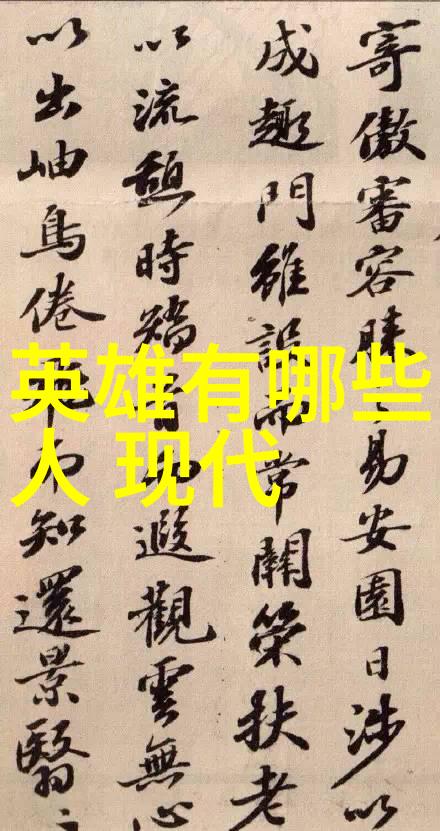 英雄有哪些
人 现代
寄傲審容膝之易安園日涉以
成趣門雖設而常關策扶老
以流憩時矯首而遐觀雲無心
以出岫鳥倦飛而知還景翳